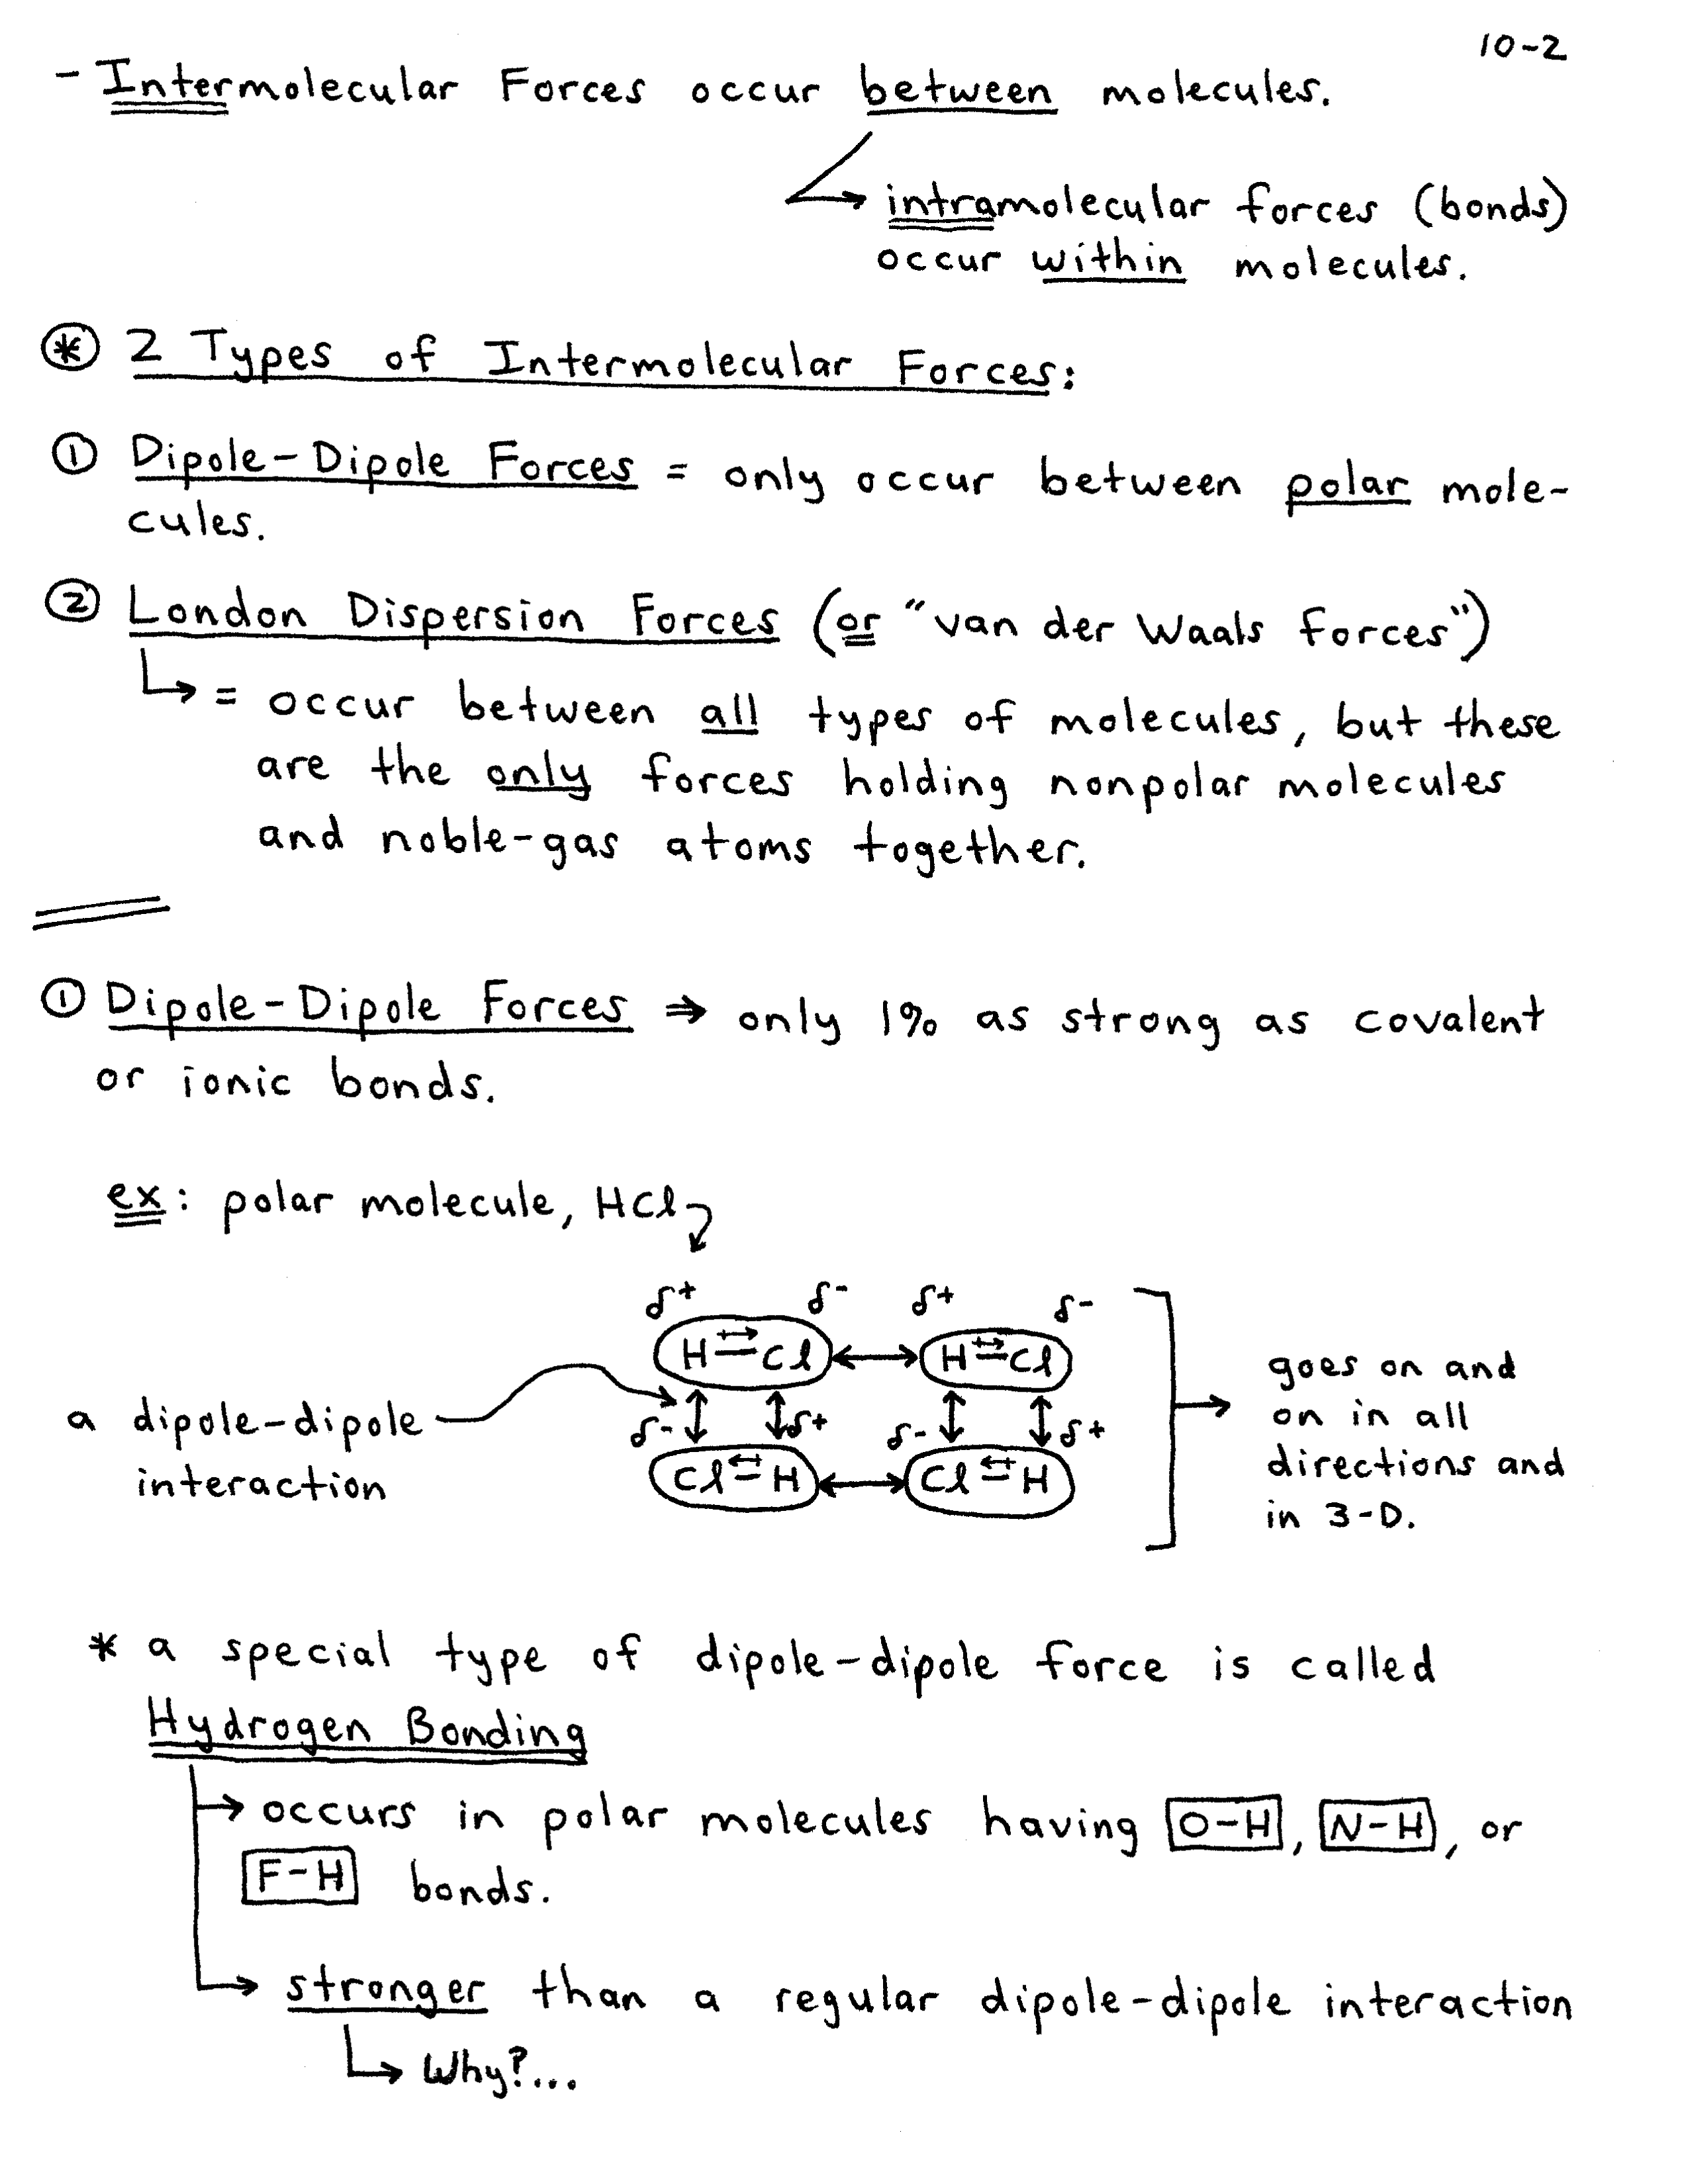 10-2
- Intermolecular Forces occur between molecules.
intramolecular forces (bonds)
occur within molecules.
⊛ 2 Types of Intermolecular Forces:
① Dipole-Dipole Forces = only occur between polar mole-
cules.
② London Dispersion Forces (or "van der Waals forces")
↳ = occur between all types of molecules, but these
are the only forces holding nonpolar molecules
and noble-gas atoms together.
① Dipole-Dipole Forces ⇒ only 1% as strong as covalent
or ionic bonds.
ex: polar molecule, HCl
δ+ δ- δ+ δ-
H–Cl ↔ H–Cl
a dipole-dipole
interaction
δ- δ+ δ- δ+
Cl–H ↔ Cl–H
goes on and
on in all
directions and
in 3-D.
* a special type of dipole-dipole force is called
Hydrogen Bonding
→ occurs in polar molecules having O-H, N-H, or
F-H bonds.
→ stronger than a regular dipole-dipole interaction
↳ Why?...